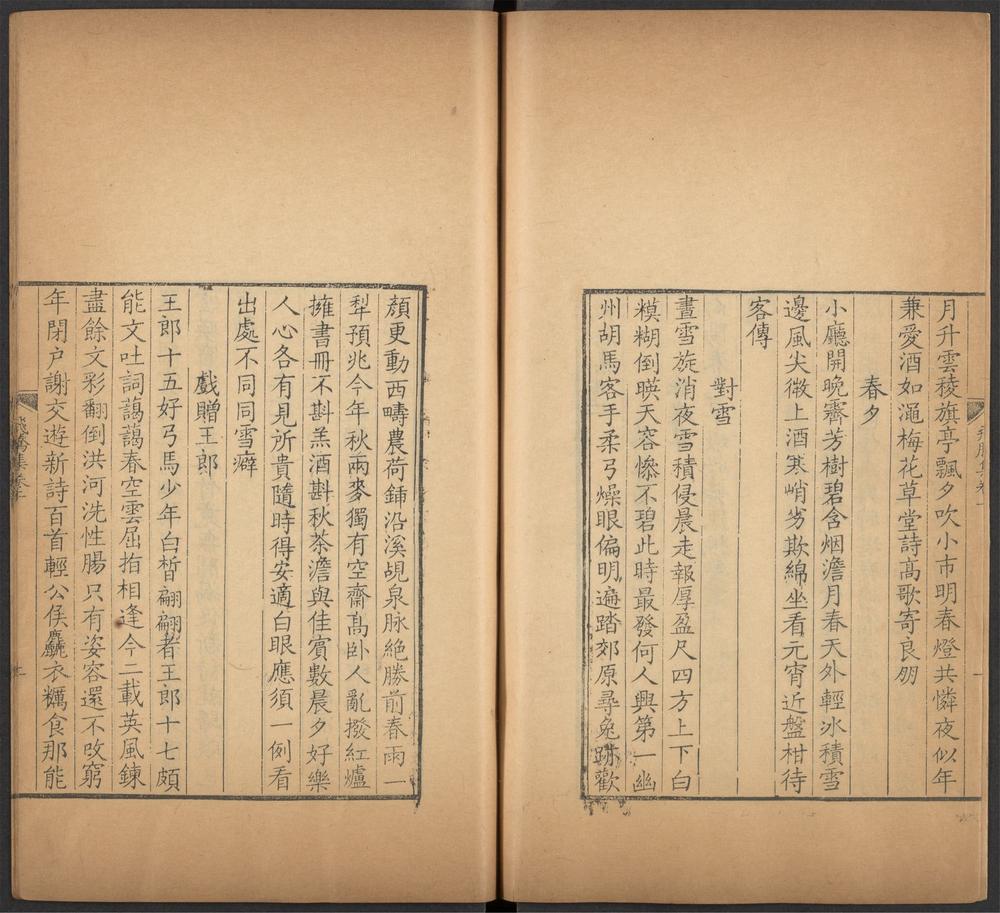 月升雲稜旗亭飄夕吹小市明春燈共憐夜似年
兼愛酒如澠梅花草堂詩高歌寄良朋
春夕
小廳開晚霽芳樹碧含烟澹月春天外輕冰積雪
邊風尖微上酒寒峭劣欺綿坐看元宵近盤柑待
客傳
對雪
晝雪旋消夜雪積侵晨走報厚盈尺四方上下白
糢糊倒暎天容慘不碧此時最發何人興第一幽
州胡馬客手柔弓燥眼偏明遍踏郊原尋兔跡歡
顏更動西疇農荷鋪沿溪覘泉脉絶勝前春雨一
犁預兆今年秋兩麥獨有空齋高卧人亂撥紅爐
擁書冊不斟羔酒斟秋茶澹與佳賓數晨夕好樂
人心各有見所貴隨時得安適白眼應須一例看
出處不同同雪癖
戲贈王郎
王郎十五好弓馬少年白皙翩翩者王郎十七頗
能文吐詞藹藹春空雲屈指相逢今二載英風鍊
盡餘文彩翻倒洪河洗性腸只有姿容還不改窮
年閉户謝交遊新詩百首輕公侯麤衣糲食那能